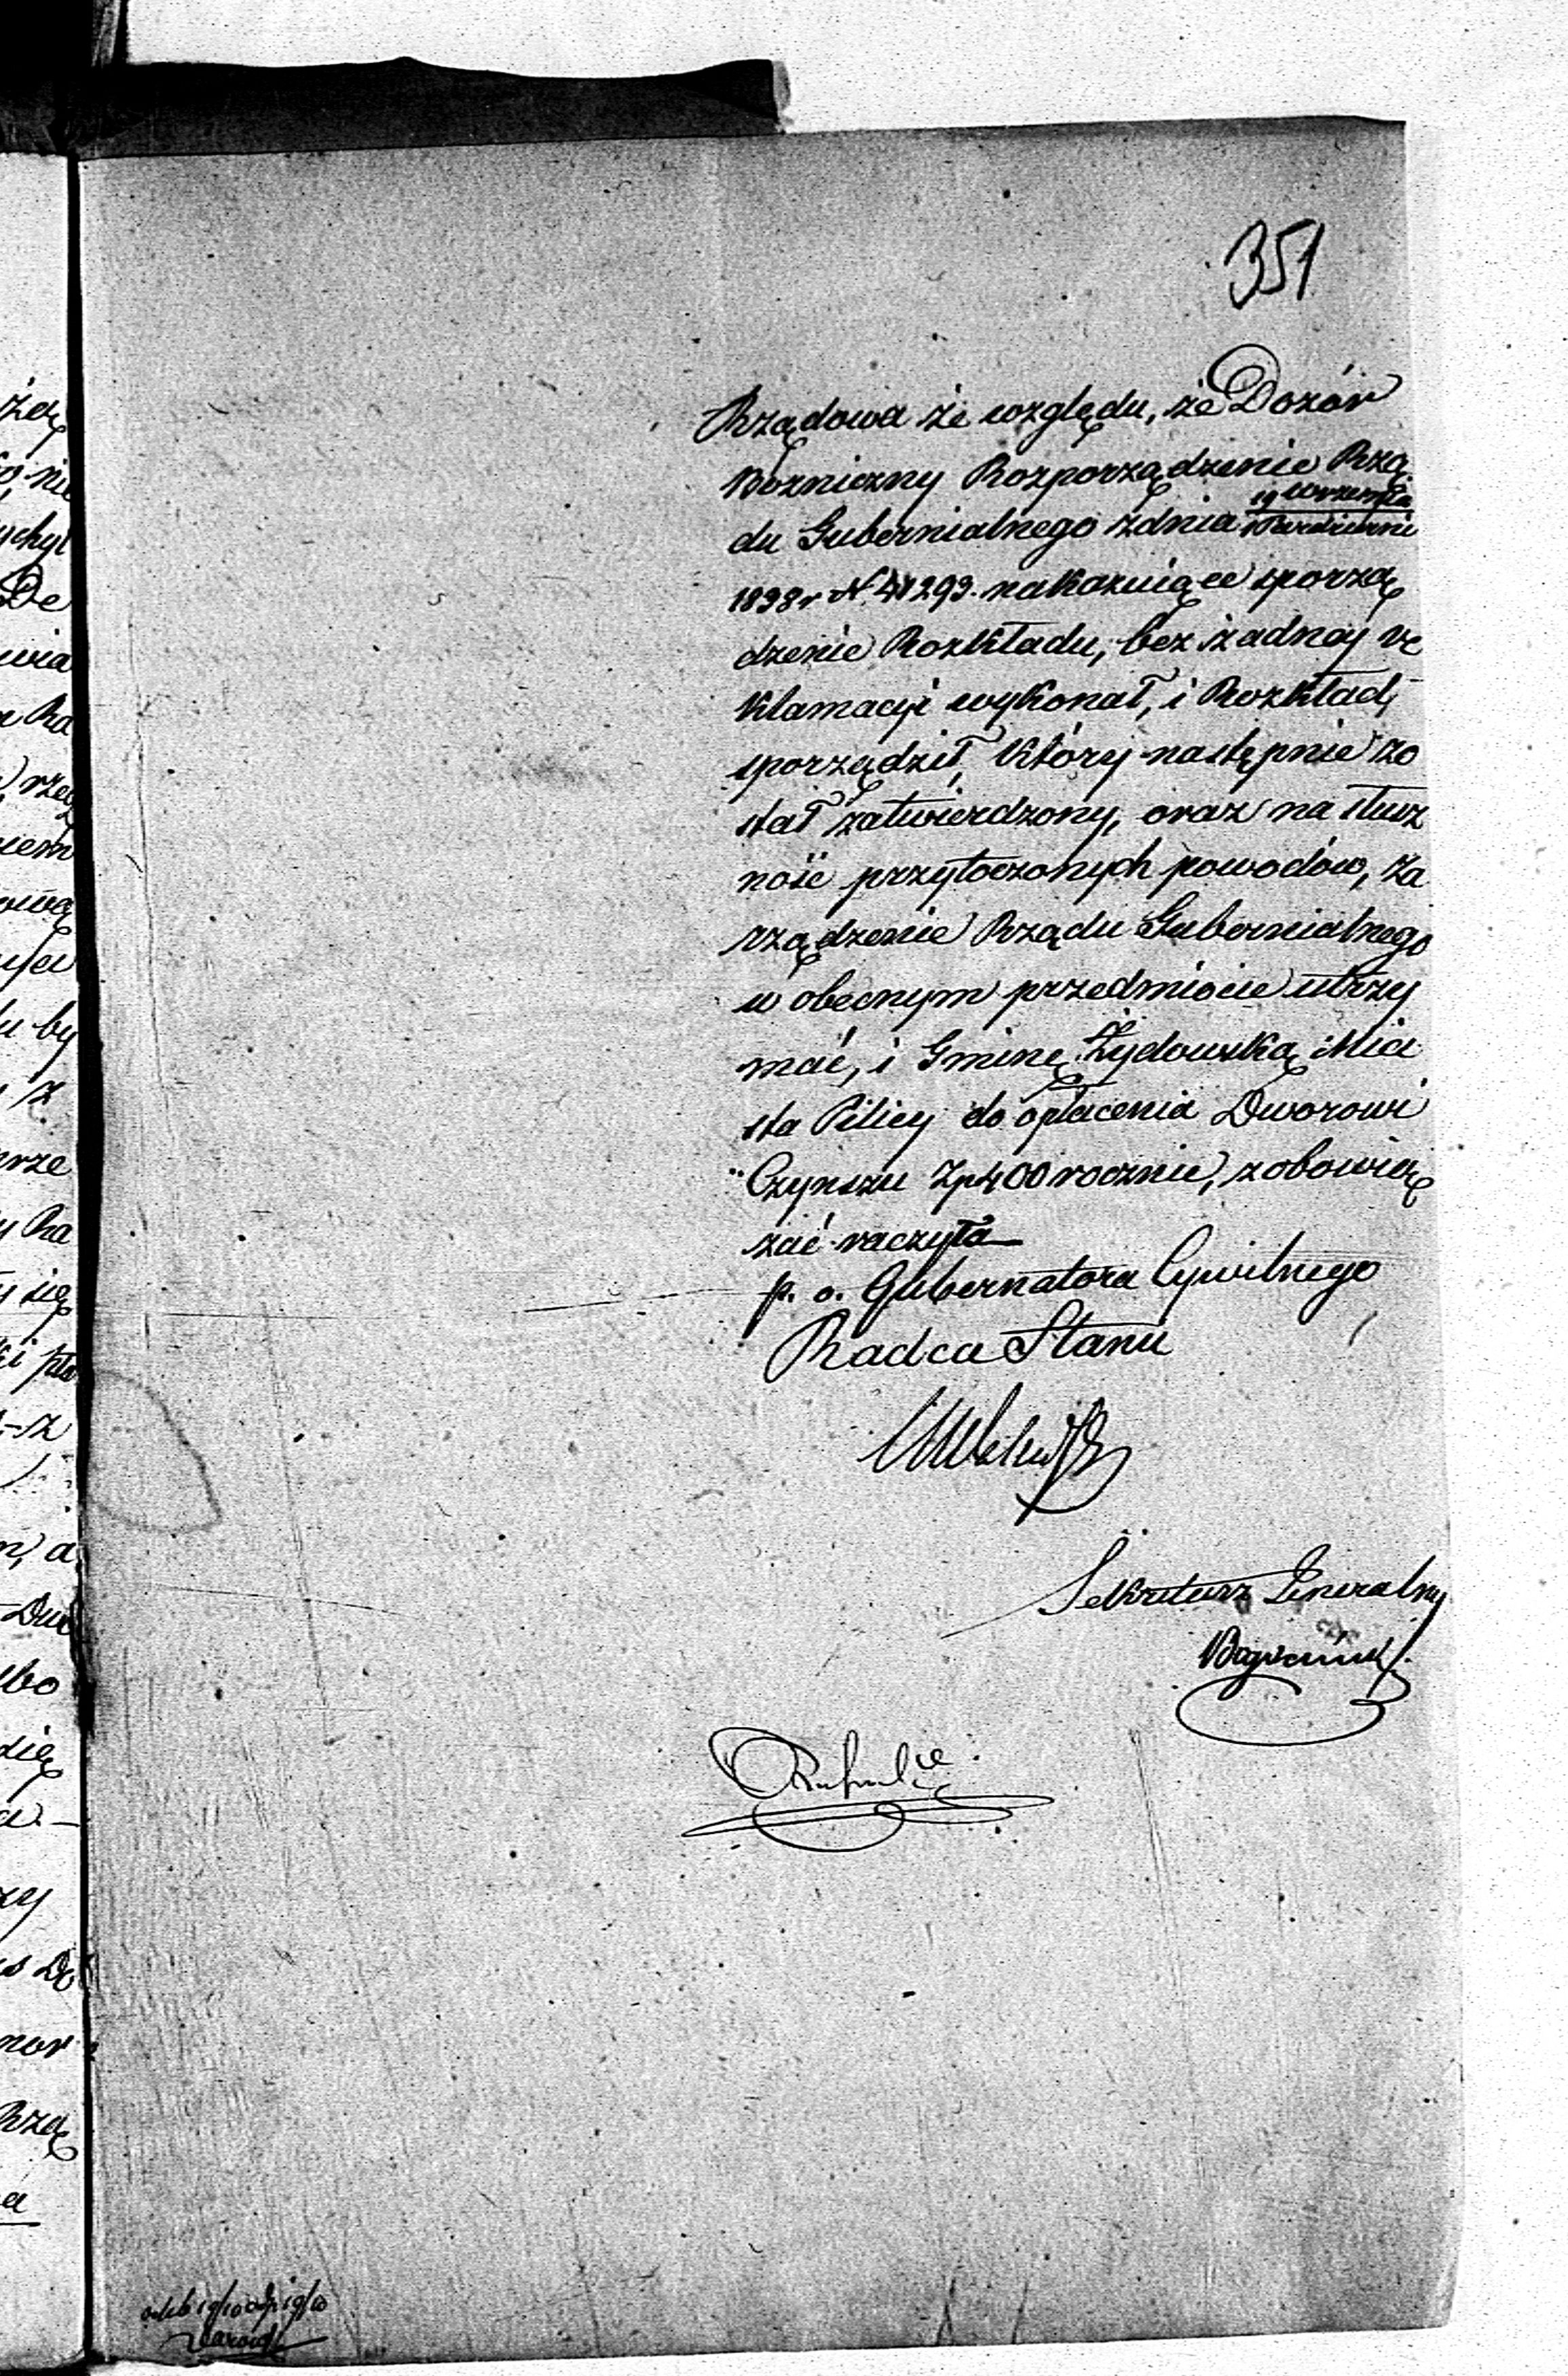 351
Rządowa że względu, że Dozór
Bozniczny Rozporządzenie Rzą
du Gubernialnego zdnia 19 Września
1 Października
1838 r N 41293. nakazuiące sporzą
dzenie Rozkładu, bez żadnéj re
klamacyi wykonał, i Rozkład
sporządził, który następnie zo
stał zatwierdzony, oraz na słusz
ność przytoczonych powodów, za
rządzenie Rządu Gubernialnego
w obecnym przedmiocie utrzy
mać, i Gminę Żydowską Mia
sta Pilicy do opłacenia Dworowi
Czynszu Zp 400 rocznie, zobowią
zać raczyła
p. o. Gubernatora Cywilnego
Radca Stanu
Sekretarz Generalny
żą
nie
ychyl
De
wia
Ra
rze
iem
ową
by
z
rze
Ra
się
ki
z
a
Dw
bo
dię
a
zy
De
nor
Rzą
a